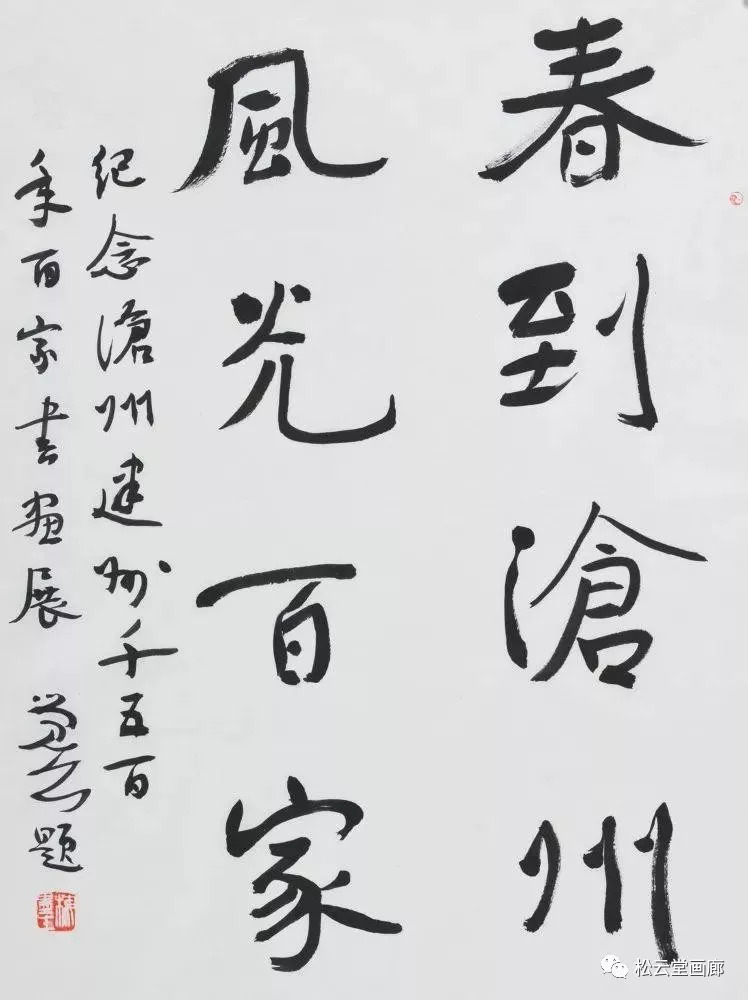 春到滄州
風光百家
紀念滄州建州千五百
年百家書畫展 題
松云堂画廊